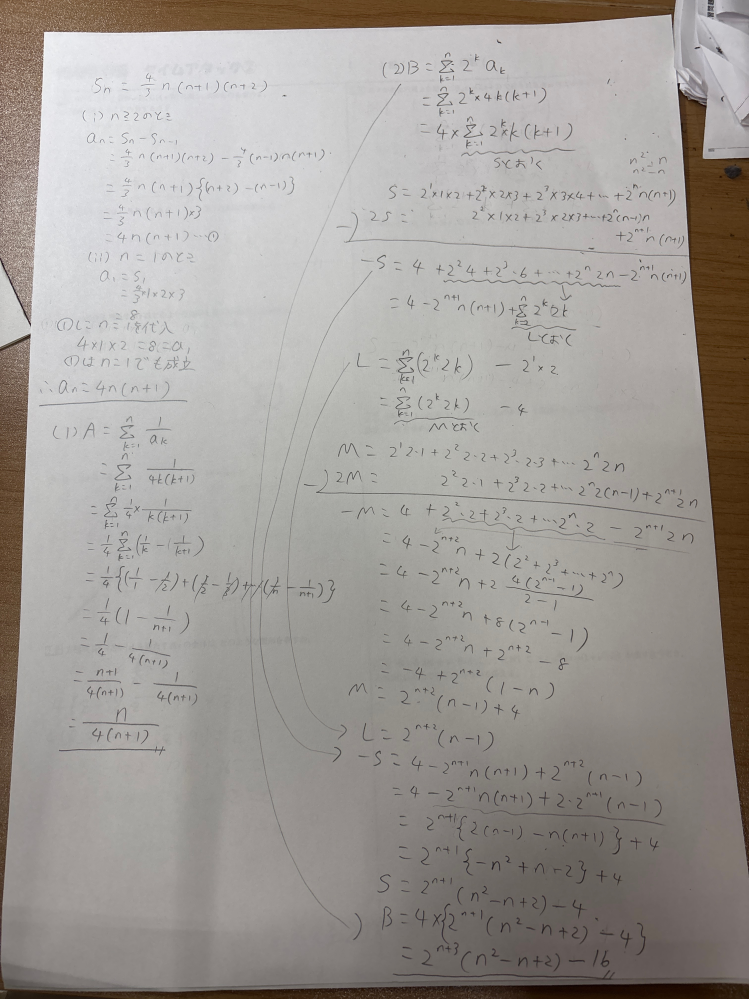 Sn = 4/3 n(n+1)(n+2)
(i) n≧2のとき
an = Sn - Sn-1
= 4/3 n(n+1)(n+2) - 4/3 (n-1)n(n+1)
= 4/3 n(n+1){(n+2)-(n-1)}
= 4/3 n(n+1)×3
= 4n(n+1) …①
(ii) n=1のとき
a1 = S1
= 4/3×1×2×3
= 8
①にn=1を代入
4×1×2=8=a1
①はn=1でも成立
∴an=4n(n+1)
(1) A = Σ[k=1→n] 1/ak
= Σ[k=1→n] 1/4k(k+1)
= Σ[k=1→n] 1/4 × 1/k(k+1)
= 1/4 Σ[k=1→n] (1/k - 1/k+1)
= 1/4{(1/1 - 1/2)+(1/2 - 1/3)+…+(1/n - 1/n+1)}
= 1/4(1 - 1/n+1)
= 1/4 - 1/4(n+1)
= n+1/4(n+1) - 1/4(n+1)
= n/4(n+1)
(2) B = Σ[k=1→n] 2^k ak
= Σ[k=1→n] 2^k×4k(k+1)
= 4×Σ[k=1→n] 2^k×k(k+1)
Sとおく
n²+n
n²-n
S = 2^1×1×2+2^2×2×3+2^3×3×4+…+2^n n(n+1)
-) 2S = 2^2×1×2+2^3×2×3+…+2^n(n-1)n
+2^(n+1) n(n+1)
-S = 4+2^2・4+2^3・6+…+2^n 2n-2^(n+1) n(n+1)
= 4-2^(n+1) n(n+1)+Σ[k=2→n] 2^k 2k
Lとおく
L = Σ[k=1→n] (2^k 2k) - 2^1×2
= Σ[k=1→n] (2^k 2k) - 4
Mとおく
M = 2^1 2・1+2^2 2・2+2^3・2・3+…2^n 2n
-) 2M = 2^2 2・1+2^3 2・2+…2^n 2(n-1)+2^(n+1) 2n
-M = 4+2^2・2+2^3・2+…2^n・2-2^(n+1) 2n
= 4-2^(n+2) n+2(2^2+2^3+…+2^n)
= 4-2^(n+2) n+2 4(2^(n-1)-1)/2-1
= 4-2^(n+2) n+8(2^(n-1)-1)
= 4-2^(n+2) n+2^(n+2)-8
= -4+2^(n+2)(1-n)
M = 2^(n+2)(n-1)+4
L = 2^(n+2)(n-1)
-S = 4-2^(n+1) n(n+1)+2^(n+2)(n-1)
= 4-2^(n+1) n(n+1)+2・2^(n+1)(n-1)
= 2^(n+1){2(n-1)-n(n+1)}+4
= 2^(n+1){-n²+n-2}+4
S = 2^(n+1)(n²-n+2)-4
B = 4×{2^(n+1)(n²-n+2)-4}
= 2^(n+3)(n²-n+2)-16